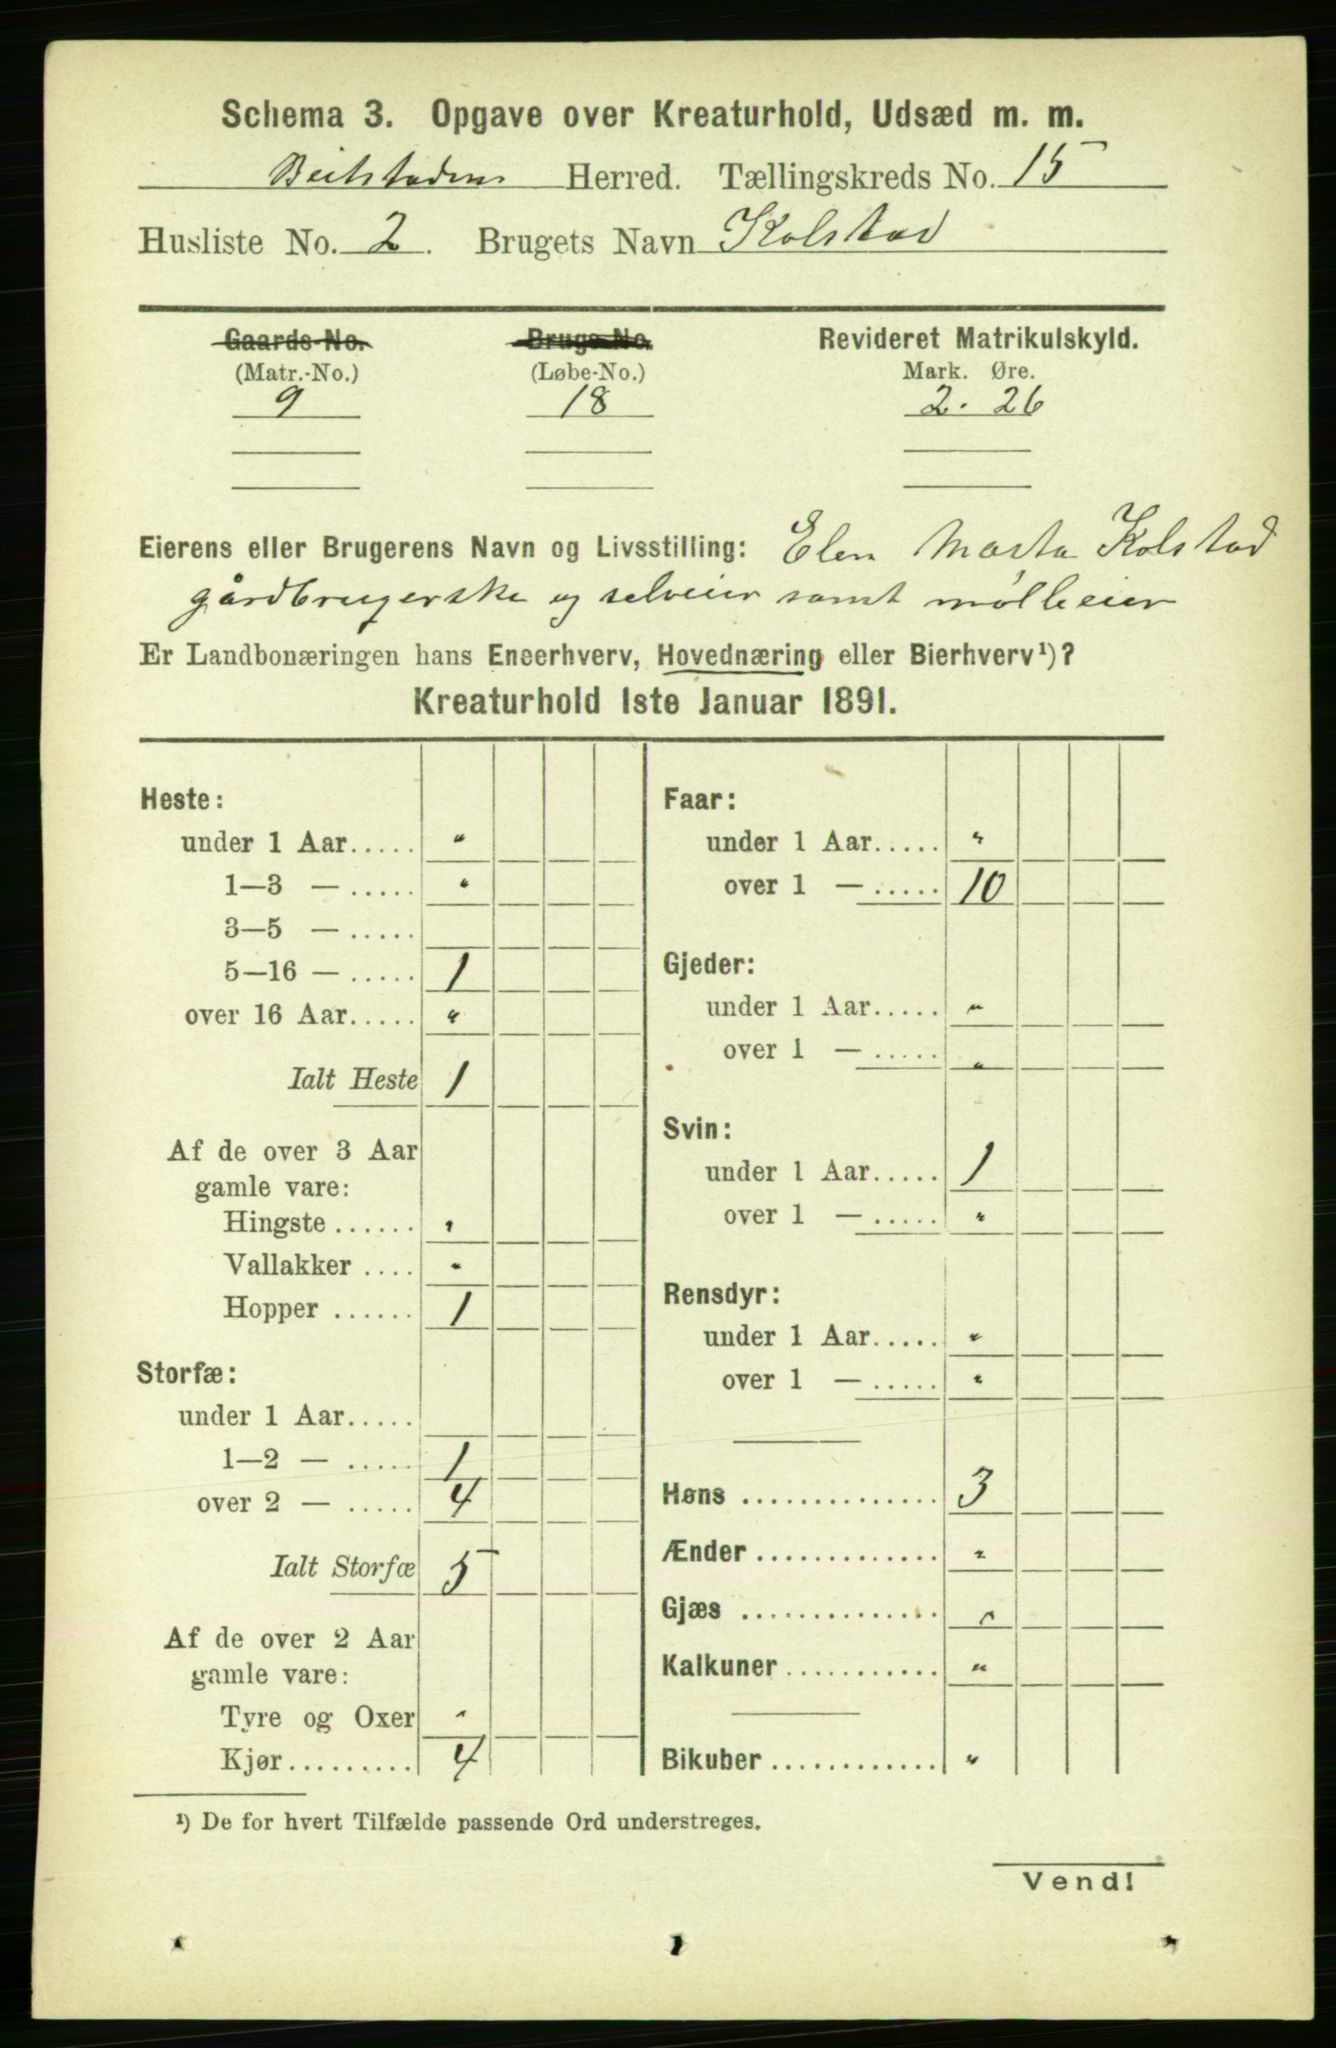 Schema 3. Opgave over Kreaturhold, Udsæd m. m.
Beitstaden Herred. Tællingskreds No. 15
Husliste No. 2. Brugets Navn Kolstad
Gaards-No. Brugs-No. Revideret Matrikulskyld.
(Matr.-No.) (Løbe-No.) Mark. Øre.
9 18 2. 26
Eierens eller Brugerens Navn og Livsstilling: Elen Marta Kolstad
gårdbrugerske og selveier samt mølleeier
Er Landbonæringen hans Eneerhverv, Hovednæring eller Bierhverv¹)?
Kreaturhold 1ste Januar 1891.
Heste:
under 1 Aar..... "
1—3 — ..... "
3—5 — .....
5—16 — ..... 1
over 16 Aar..... "
Ialt Heste 1
Af de over 3 Aar
gamle vare:
Hingste ...... "
Vallakker .... "
Hopper ...... 1
Storfæ:
under 1 Aar.....
1—2 — ..... 1
over 2 — ..... 4
Ialt Storfæ 5
Af de over 2 Aar
gamle vare:
Tyre og Oxer "
Kjør......... 4
Faar:
under 1 Aar..... "
over 1 — ..... 10
Gjeder:
under 1 Aar..... "
over 1 — ..... "
Svin:
under 1 Aar..... 1
over 1 — ..... "
Rensdyr:
under 1 Aar..... "
over 1 — ..... "
Høns .............. 3
Ænder ............. "
Gjæs .............. "
Kalkuner ........... "
Bikuber ............ "
¹) De for hvert Tilfælde passende Ord understreges.
Vend!